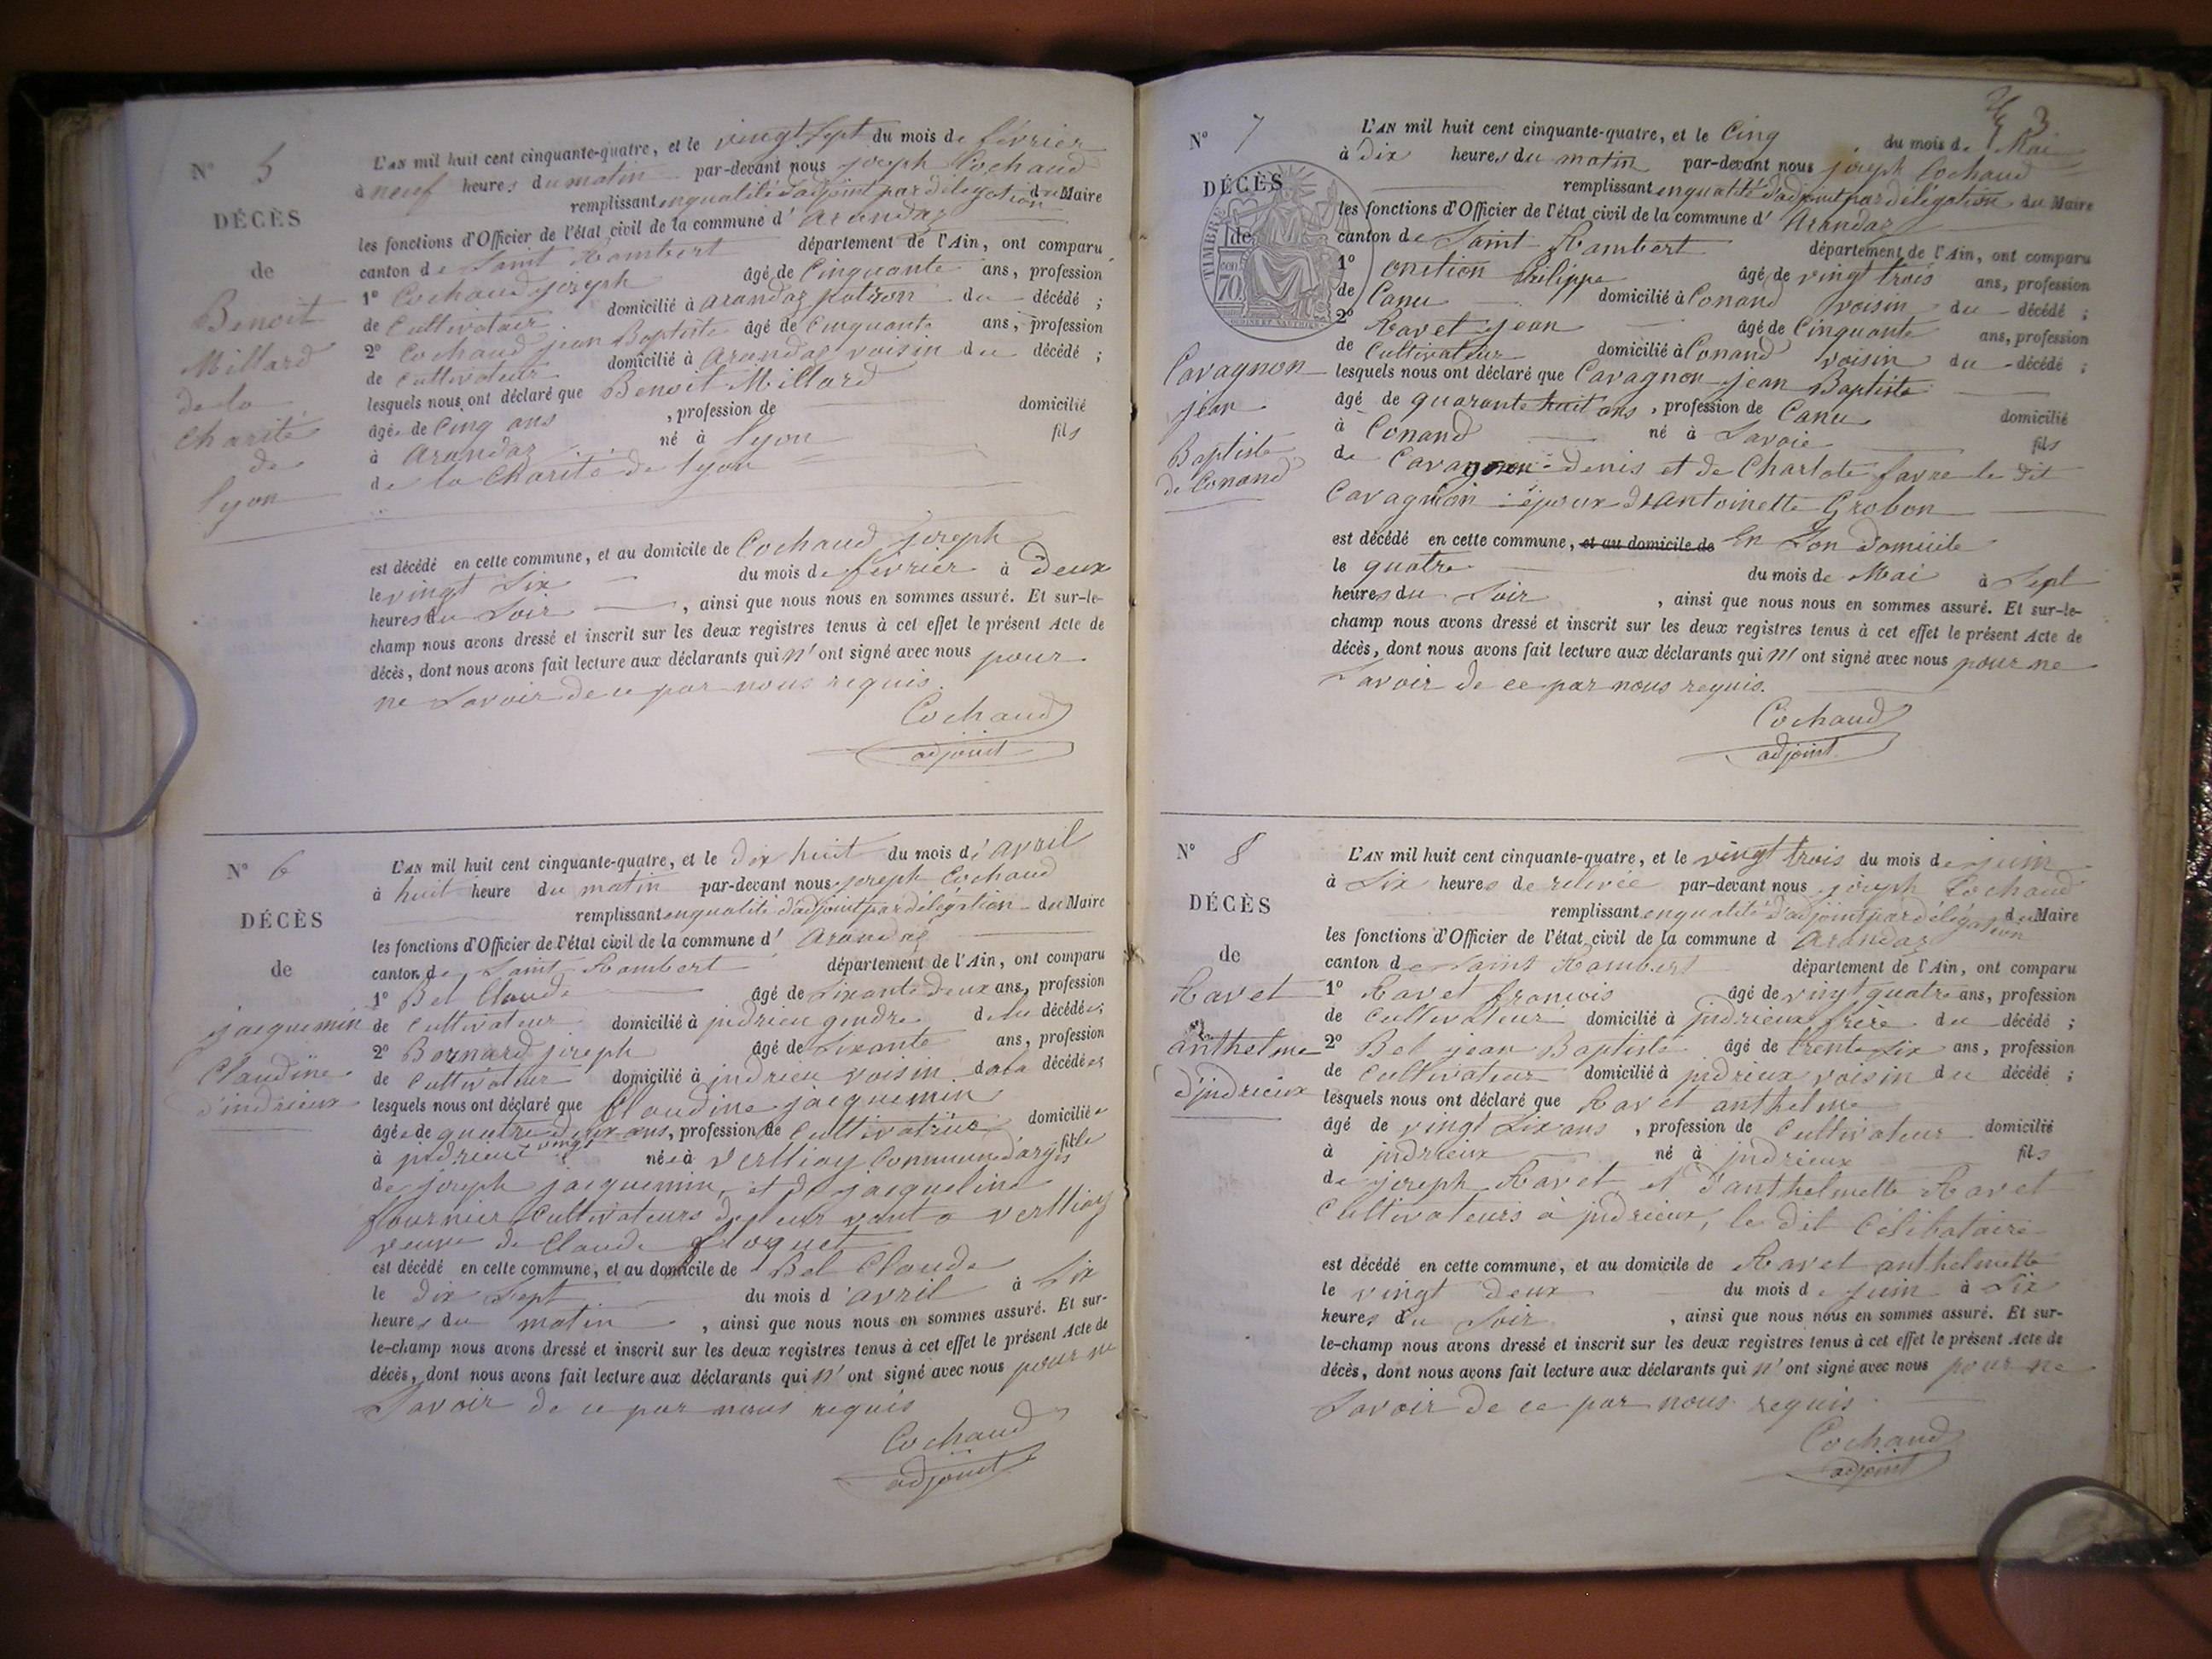 N° 5
DÉCÈS
de
Benoit
Millard
de la
Charité
de
Lyon
L'AN mil huit cent cinquante-quatre, et le vingt sept du mois de février
à neuf heures du matin par-devant nous joseph Cochaud
remplissant en qualité d'adjoint par délégation du Maire
les fonctions d'Officier de l'état civil de la commune d' arandaz
canton de Saint Rambert département de l'Ain, ont comparu
1° Cochaud joseph âgé de Cinquante ans, profession
de Cultivateur domicilié à arandaz patron du décédé ;
2° Cochaud jean Baptiste âgé de Cinquante ans, profession
de Cultivateur domicilié à arandaz voisin du décédé ;
lesquels nous ont déclaré que Benoit Millard
âgé de Cinq ans , profession de domicilié
à arandaz né à Lyon fils
de la Charité de Lyon
est décédé en cette commune, et au domicile de Cochaud joseph
le vingt Six du mois de février à Deux
heures du Soir , ainsi que nous nous en sommes assuré. Et sur-le-
champ nous avons dressé et inscrit sur les deux registres tenus à cet effet le présent Acte de
décès, dont nous avons fait lecture aux déclarants qui n' ont signé avec nous pour
ne Savoir de ce par nous requis.
Cochaud
adjoint
N° 6
DÉCÈS
de
jacquemin
Claudine
d'indrieux
L'AN mil huit cent cinquante-quatre, et le dix huit du mois d' avril
à huit heure du matin par-devant nous joseph Cochaud
remplissant en qualité d'adjoint par délégation du Maire
les fonctions d'Officier de l'état civil de la commune d' arandaz
canton de Saint Rambert département de l'Ain, ont comparu
1° Bel Claude âgé de Soixante deux ans, profession
de Cultivateur domicilié à indrieu gendre de la décédée;
2° Bernard joseph âgé de Soixante ans, profession
de Cultivateur domicilié à indrieu voisin de la décédée;
lesquels nous ont déclaré que Claudine jacquemin
âgée de quatre vingt deux ans, profession de Cultivatrice domiciliée
à indrieux née à Verttioy Commune d'argis fille
de joseph jacquemin, et de jacqueline
fournier Cultivateurs de leur vivant a verttioy
veuve de Claude floquet
est décédé en cette commune, et au domicile de Bel Claude
le dix Sept du mois d' avril à Six
heures du matin , ainsi que nous nous en sommes assuré. Et sur-
le-champ nous avons dressé et inscrit sur les deux registres tenus à cet effet le présent Acte de
décès, dont nous avons fait lecture aux déclarants qui n' ont signé avec nous pour ne
Savoir de ce par nous requis
Cochaud
adjoint
3
N° 7
DÉCÈS
de
TIMBRE
70
Cavagnon
jean
Baptiste
de Conand
L'AN mil huit cent cinquante-quatre, et le Cinq du mois de Mai
à Dix heures du matin par-devant nous joseph Cochaud
remplissant en qualité d'adjoint par délégation du Maire
les fonctions d'Officier de l'état civil de la commune d' Arandaz
canton de Saint Rambert département de l'Ain, ont comparu
1° Philippe âgé de vingt trois ans, profession
de Canu domicilié à Conand voisin du décédé ;
2° Ravet jean âgé de Cinquante ans, profession
de Cultivateur domicilié à Conand voisin du décédé ;
lesquels nous ont déclaré que Cavagnon jean Baptiste
âgé de quarante huit ans , profession de Canu domicilié
à Conand né à Savoie fils
de Cavagnon denis et de Charlote favre le dit
Cavagnon époux d'Antoinette Grobon
est décédé en cette commune, et au domicile de En Son domicile
le quatre du mois de Mai à Sept
heures du Soir , ainsi que nous nous en sommes assuré. Et sur-le-
champ nous avons dressé et inscrit sur les deux registres tenus à cet effet le présent Acte de
décès, dont nous avons fait lecture aux déclarants qui n' ont signé avec nous pour ne
Savoir de ce par nous requis.
Cochaud
adjoint.
N° 8
DÉCÈS
de
Ravet
anthelme
d'indrieux
L'AN mil huit cent cinquante-quatre, et le vingt trois du mois de juin
à Six heures de relevée par-devant nous joseph Cochaud
remplissant en qualité d'adjoint par délégation du Maire
les fonctions d'Officier de l'état civil de la commune d arandaz
canton de Saint Rambert département de l'Ain, ont comparu
1° Ravet françois âgé de vingt quatre ans, profession
de Cultivateur domicilié à indrieux frère du décédé ;
2° Bel jean Baptiste âgé de trente Six ans, profession
de Cultivateur domicilié à indrieux voisin du décédé ;
lesquels nous ont déclaré que Ravet anthelme
âgé de vingt Six ans , profession de Cultivateur domicilié
à indrieux né à indrieux fils
de joseph Ravet et d'anthelmette Ravet
Cultivateurs à indrieux, le dit Célibataire
est décédé en cette commune, et au domicile de Ravet anthelmette
le vingt deux du mois de juin à Six
heures du Soir , ainsi que nous nous en sommes assuré. Et sur-
le-champ nous avons dressé et inscrit sur les deux registres tenus à cet effet le présent Acte de
décès, dont nous avons fait lecture aux déclarants qui n' ont signé avec nous pour ne
Savoir de ce par nous requis
Cochaud
adjoint